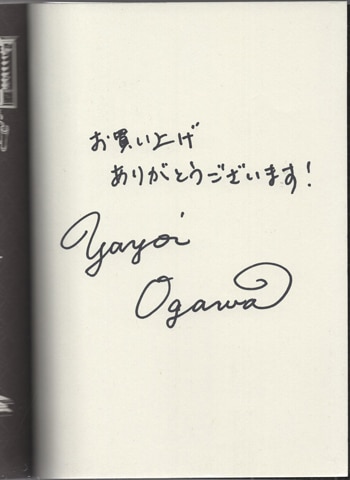 お買い上げ
ありがとうございます!
Yayoi
Ogawa